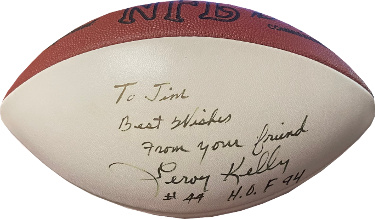 NFL
To Jim
Best Wishes
From your friend
Leroy Kelly
#44 H.O.F 94